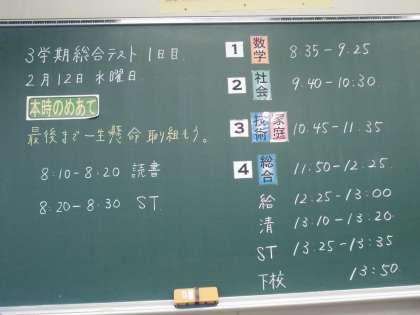 3学期総合テスト 1日目
2月12日 水曜日
本時のめあて
最後まで一生懸命取り組もう。
8:10-8:20 読書
8:20-8:30 ST
1 数学 8:35-9:25
2 社会 9:40-10:30
3 技術 家庭 10:45-11:35
4 総合 11:50-12:25
給 12:25-13:00
清 13:10-13:20
ST 13:25-13:35
下校 13:50